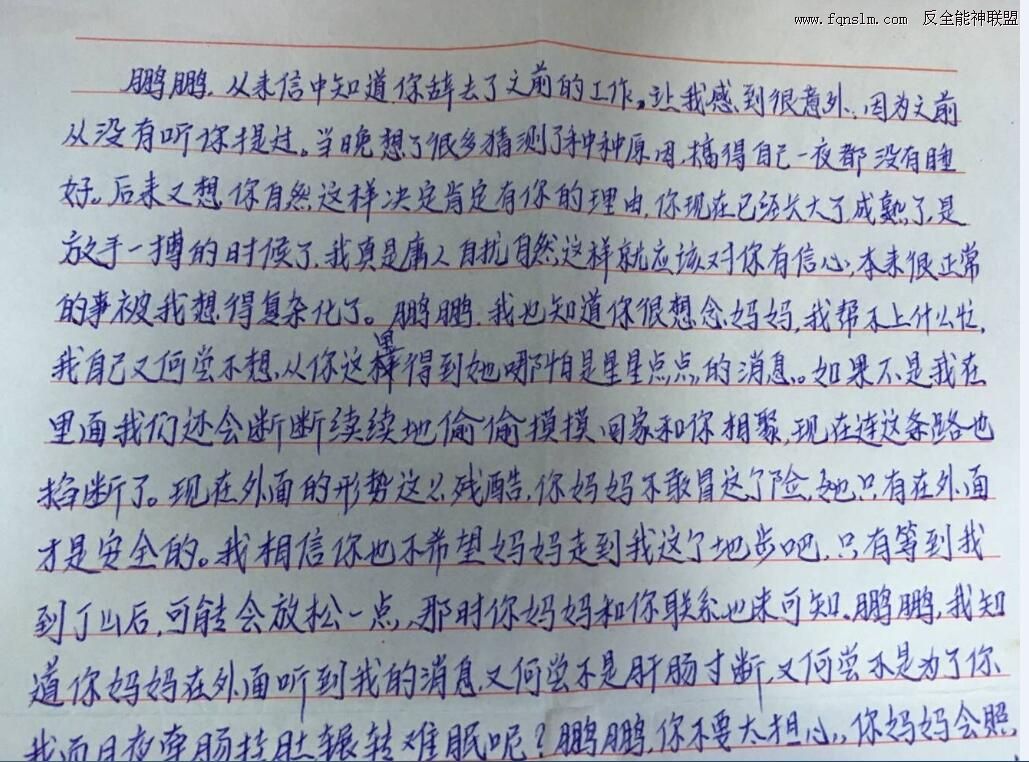 www.fqnslm.com 反全能神联盟
鹏鹏，从来信中知道你辞去了之前的工作，让我感到很意外，因为之前
从没有听你提过。当晚想了很多猜测了种种原因，搞得自己一夜都没有睡
好。后来又想你自然这样决定肯定有你的理由，你现在已经长大了成熟了，是
放手一搏的时候了，我真是庸人自扰自然这样就应该对你有信心，本来很正常
的事被我想得复杂化了。鹏鹏，我也知道你很想念妈妈，我帮不上什么忙，
我自己又何尝不想，从你这里得到她哪怕是星星点点的消息。如果不是我在
里面我们还会断断续续地偷偷摸摸回家和你相聚，现在连这条路也
掐断了。现在外面的形势这么残酷，你妈妈不敢冒这个险，她只有在外面
才是安全的。我相信你也不希望妈妈走到我这个地步吧，只有等到我
到了山后，可能会放松一点，那时你妈妈和你联系也未可知。鹏鹏，我知
道你妈妈在外面听到我的消息，又何尝不是肝肠寸断，又何尝不是为了你
我而日夜牵肠挂肚辗转难眠呢？鹏鹏，你不要太担心，你妈妈会照